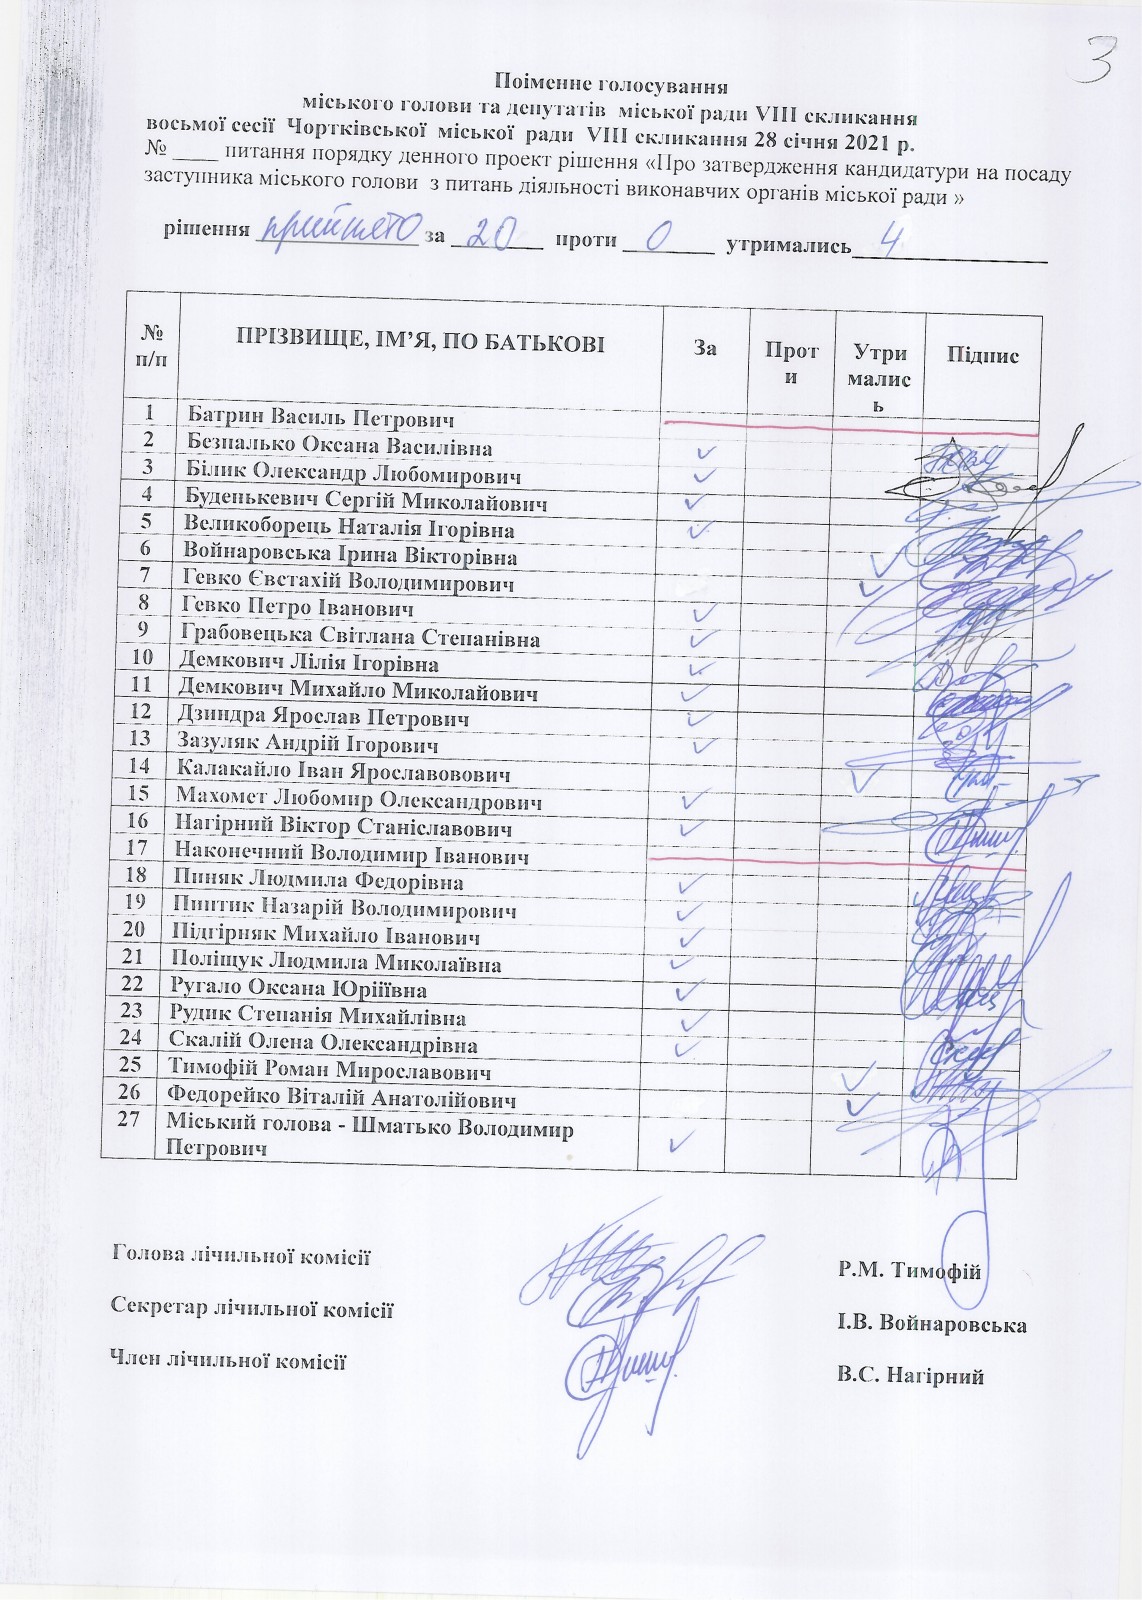 3
Поіменне голосування
міського голови та депутатів міської ради VIII скликання
восьмої сесії Чортківської міської ради VIII скликання 28 січня 2021 р.
№ ____ питання порядку денного проект рішення «Про затвердження кандидатури на посаду
заступника міського голови з питань діяльності виконавчих органів міської ради »
рішення прийнято за 20 проти 0 утримались 4
№ п/п ПРІЗВИЩЕ, ІМ’Я, ПО БАТЬКОВІ За Проти Утрималиcь Підпис
1 Батрин Василь Петрович
2 Безпалько Оксана Василівна ✓
3 Білик Олександр Любомирович ✓
4 Буденькевич Сергій Миколайович ✓
5 Великоборець Наталія Ігорівна ✓
6 Войнаровська Ірина Вікторівна ✓
7 Гевко Євстахій Володимирович ✓
8 Гевко Петро Іванович ✓
9 Грабовецька Світлана Степанівна ✓
10 Демкович Лілія Ігорівна ✓
11 Демкович Михайло Миколайович ✓
12 Дзиндра Ярослав Петрович ✓
13 Зазуляк Андрій Ігорович ✓
14 Калакайло Іван Ярославовович ✓
15 Махомет Любомир Олександрович ✓
16 Нагірний Віктор Станіславович ✓
17 Наконечний Володимир Іванович
18 Пиняк Людмила Федорівна ✓
19 Пиптик Назарій Володимирович ✓
20 Підгірняк Михайло Іванович ✓
21 Поліщук Людмила Миколаївна ✓
22 Ругало Оксана Юріїївна ✓
23 Рудик Степанія Михайлівна ✓
24 Скалій Олена Олександрівна ✓
25 Тимофій Роман Мирославович ✓
26 Федорейко Віталій Анатолійович ✓
27 Міський голова - Шматько Володимир
Петрович ✓
Голова лічильної комісії Р.М. Тимофій
Секретар лічильної комісії І.В. Войнаровська
Член лічильної комісії В.С. Нагірний